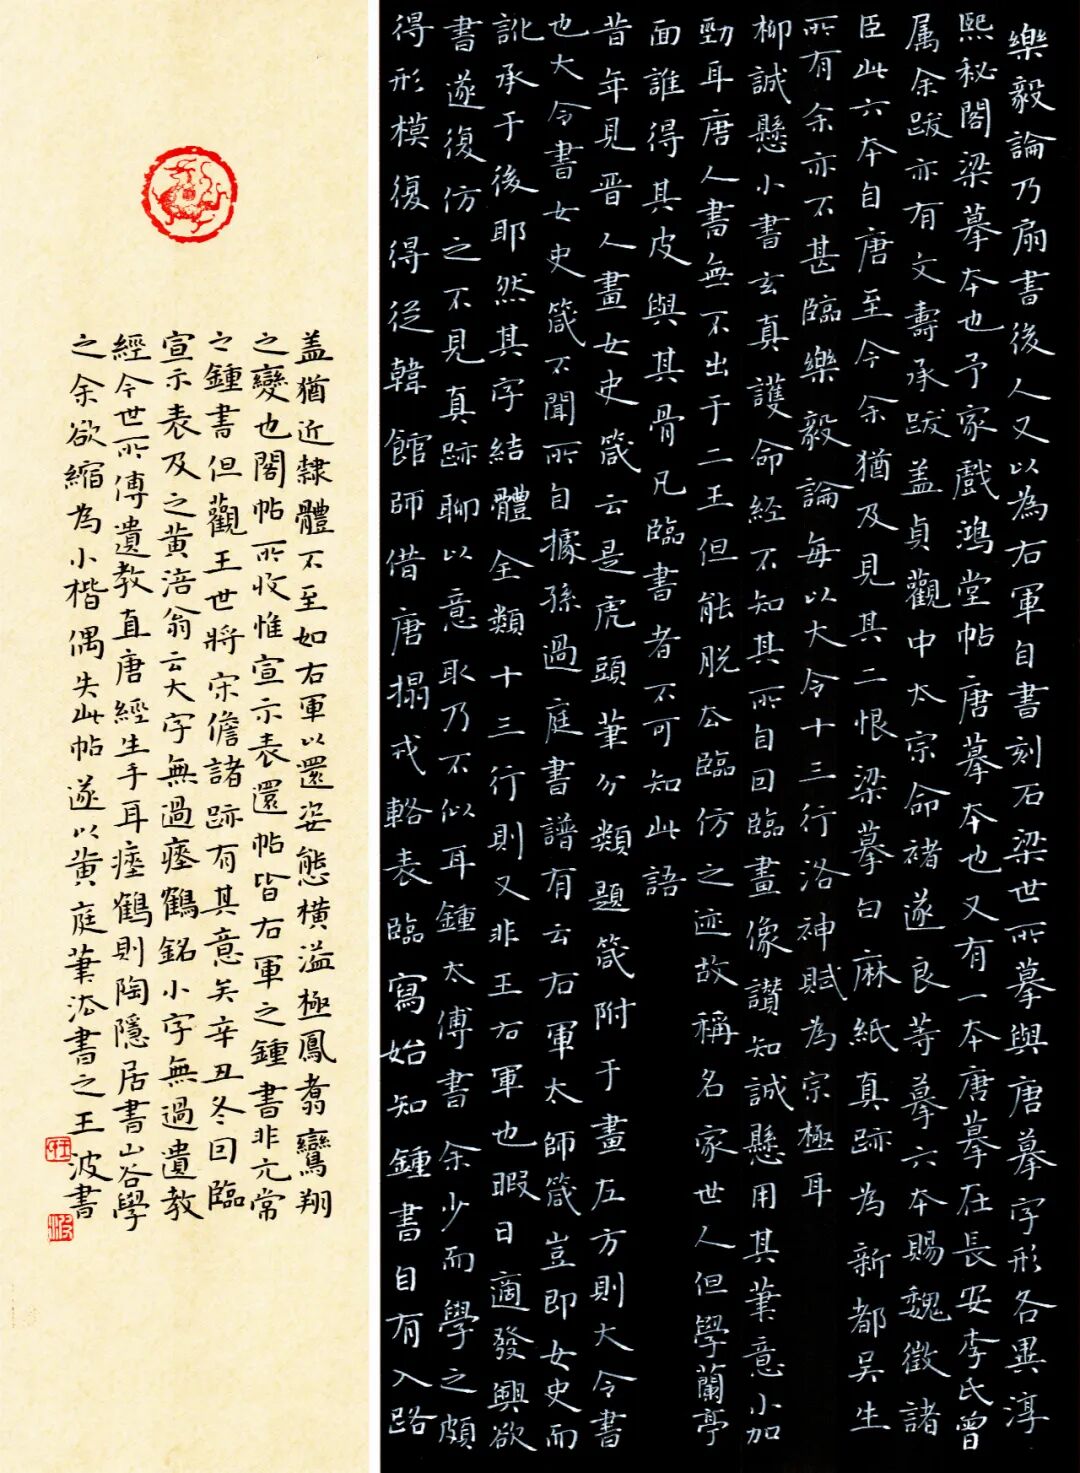 樂毅論乃扇書後人又以為右軍自書刻石梁世所摹與唐摹字形各異淳
熙秘閣梁摹本也予家戲鴻堂帖唐摹本也又有一本唐摹在長安李氏曾
属余跋亦有文壽承跋盖貞觀中太宗命褚遂良等摹六本賜魏徵諸
臣此六本自唐至今余猶及見其二恨梁摹白麻紙真跡為新都吴生
所有余亦不甚臨樂毅論每以大令十三行洛神賦為宗極耳
柳誠懸小書玄真護命經不知其所自回臨畫像讃知誠懸用其筆意小加
勁耳唐人書無不出于二王但能脱去臨仿之迹故稱名家世人但學蘭亭
面誰得其皮與其骨凡臨書者不可知此語
昔年見晋人畫女史箴云是虎頭筆分類題箴附于畫左方則大令書
也大令書女史箴不聞所自據孫過庭書譜有云右軍太師箴豈即女史而
訛承于後耶然其字結體全類十三行則又非王右軍也暇日適發興欲
書遂復仿之不見真跡聊以意取乃不似耳鍾太傅書余少而學之頗
得形模復得從韓館師借唐搨戎輅表臨寫始知鍾書自有入路
盖猶近隸體不至如右軍以還姿態横溢極鳳翥鸞翔
之變也閣帖所收惟宣示表還帖皆右軍之鍾書非元常
之鍾書但觀王世將宋儋諸跡有其意矣辛丑冬回臨
宣示表及之黄涪翁云大字無過瘞鶴銘小字無過遺教
經今世所傳遺教直唐經生手耳瘞鶴則陶隱居書山谷學
之余欲縮為小楷偶失此帖遂以黄庭筆法書之王波書